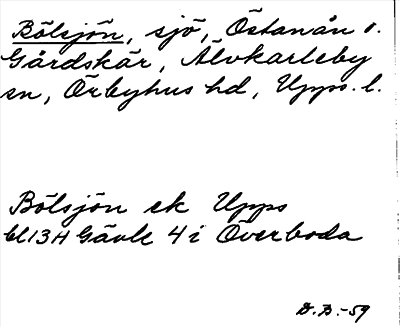 Bölsjön, sjö, Östanån o.
Gårdskär, Älvkarleby
sn, Örbyhus hd, Upps. l.
Bölsjön ek Upps
bl 13H Gävle 4 i Överboda
D.B.-59